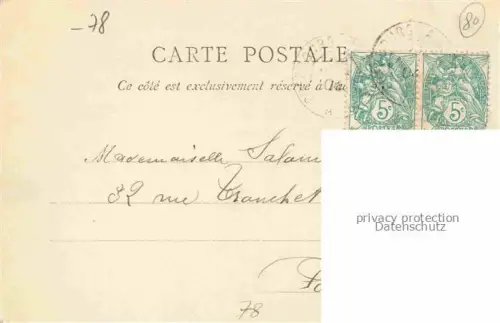 -78
80
CARTE POSTALE
Ce côté est exclusivement réservé à l'a
5c 5c
Mademoiselle Salom
32 rue Tronchet
privacy protection
Datenschutz
78